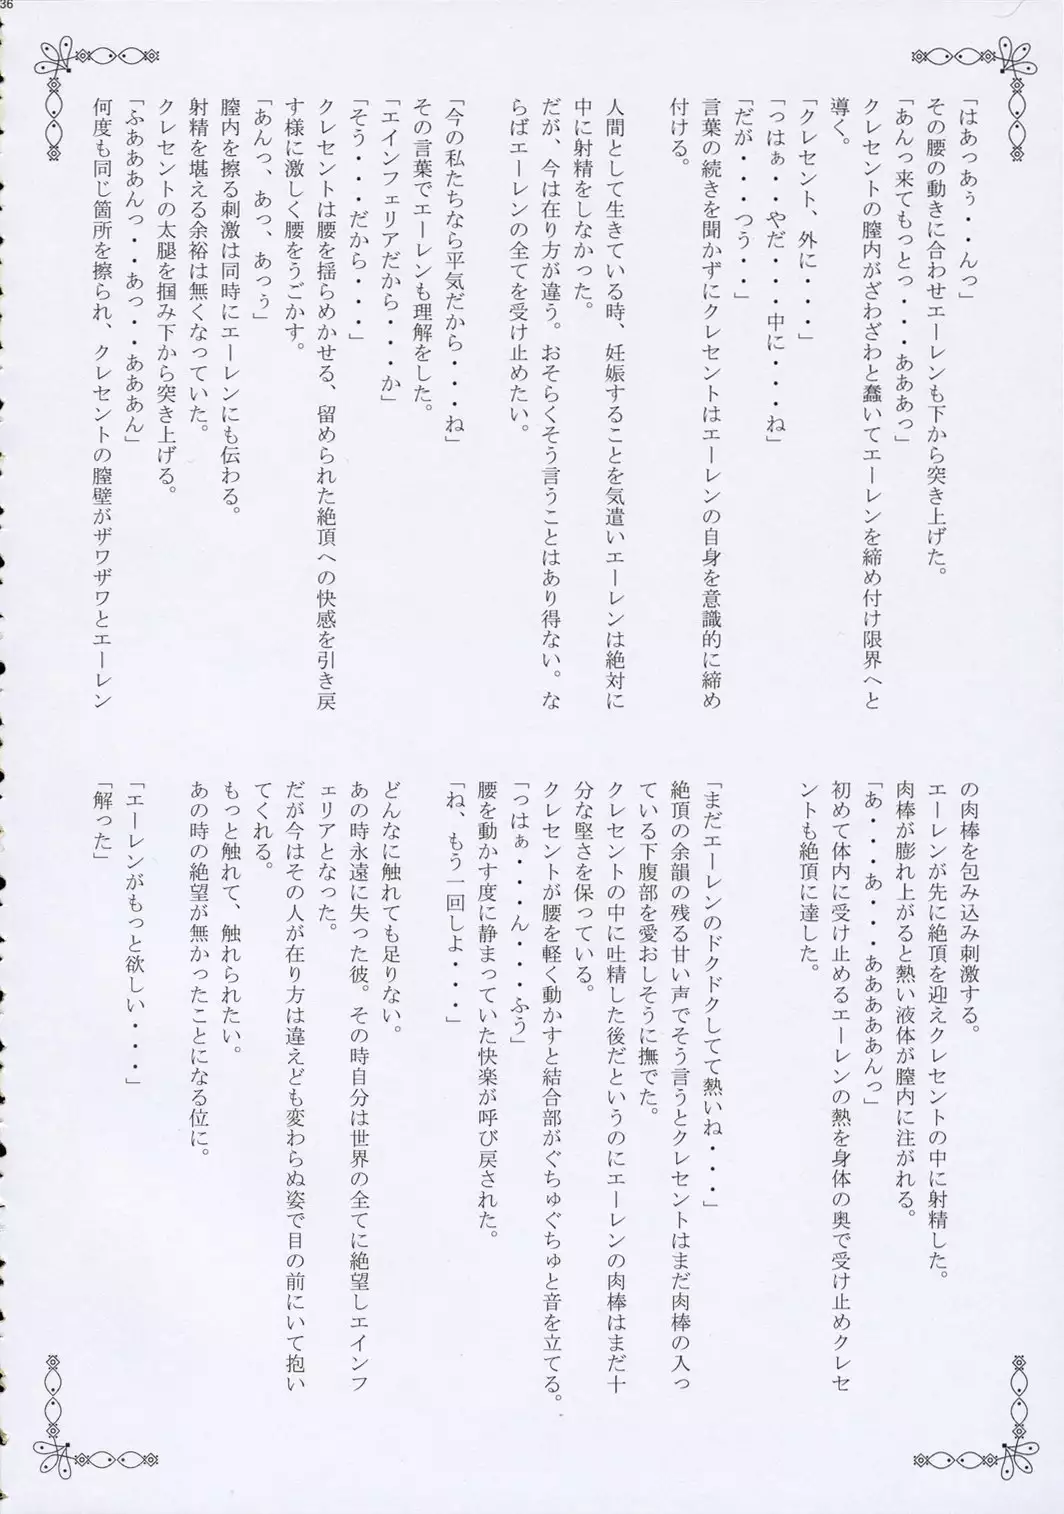 36
「はあっあぅ・・んっ」
その腰の動きに合わせエーレンも下から突き上げた。
「あんっ来てもっとっ・・・あああっ」
クレセントの膣内がざわざわと蠢いてエーレンを締め付け限界へと
導く。
「クレセント、外に・・・」
「っはぁ・・やだ・・・中に・・・ね」
「だが・・・つう・・」
言葉の続きを聞かずにクレセントはエーレンの自身を意識的に締め
付ける。
人間として生きている時、妊娠することを気遣いエーレンは絶対に
中に射精をしなかった。
だが、今は在り方が違う。おそらくそう言うことはあり得ない。な
らばエーレンの全てを受け止めたい。
「今の私たちなら平気だから・・・ね」
その言葉でエーレンも理解をした。
「エインフェリアだから・・・か」
「そう・・・だから・・・」
クレセントは腰を揺らめかせる、留められた絶頂への快感を引き戻
す様に激しく腰をうごかす。
「あんっ、あっ、あっぅ」
膣内を擦る刺激は同時にエーレンにも伝わる。
射精を堪える余裕は無くなっていた。
クレセントの太腿を掴み下から突き上げる。
「ふあああんっ・・あっ・・ああん」
何度も同じ箇所を擦られ、クレセントの膣壁がザワザワとエーレン
の肉棒を包み込み刺激する。
エーレンが先に絶頂を迎えクレセントの中に射精した。
肉棒が膨れ上がると熱い液体が膣内に注がれる。
「あ・・・あ・・・ああああんっ」
初めて体内に受け止めるエーレンの熱を身体の奥で受け止めクレセ
ントも絶頂に達した。
「まだエーレンのドクドクしてて熱いね・・・」
絶頂の余韻の残る甘い声でそう言うとクレセントはまだ肉棒の入っ
ている下腹部を愛おしそうに撫でた。
クレセントの中に吐精した後だというのにエーレンの肉棒はまだ十
分な堅さを保っている。
クレセントが腰を軽く動かすと結合部がぐちゅぐちゅと音を立てる。
「っはぁ・・・ん・・・ふう」
腰を動かす度に静まっていた快楽が呼び戻された。
「ね、もう一回しよ・・・」
どんなに触れても足りない。
あの時永遠に失った彼。その時自分は世界の全てに絶望しエインフ
ェリアとなった。
だが今はその人が在り方は違えども変わらぬ姿で目の前にいて抱い
てくれる。
もっと触れて、触れられたい。
あの時の絶望が無かったことになる位に。
「エーレンがもっと欲しい・・・」
「解った」